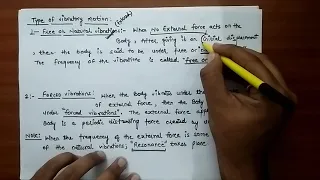 Type of vibratory motion:
1:- Free or Natural vibrations:- When No External force acts on the
Body, After giving is an initial displacement
, then the body is said to be under free or
The frequency of the vibrations is called "free or
2:- Forced vibrations:- When the Body vibrates under the
of external force, then the Body
under "forced vibrations". The external force app
Body is a periodic disturbing force created by
NOTE: When the frequency of the external force is same
of the natural vibrations, "Resonance" takes place